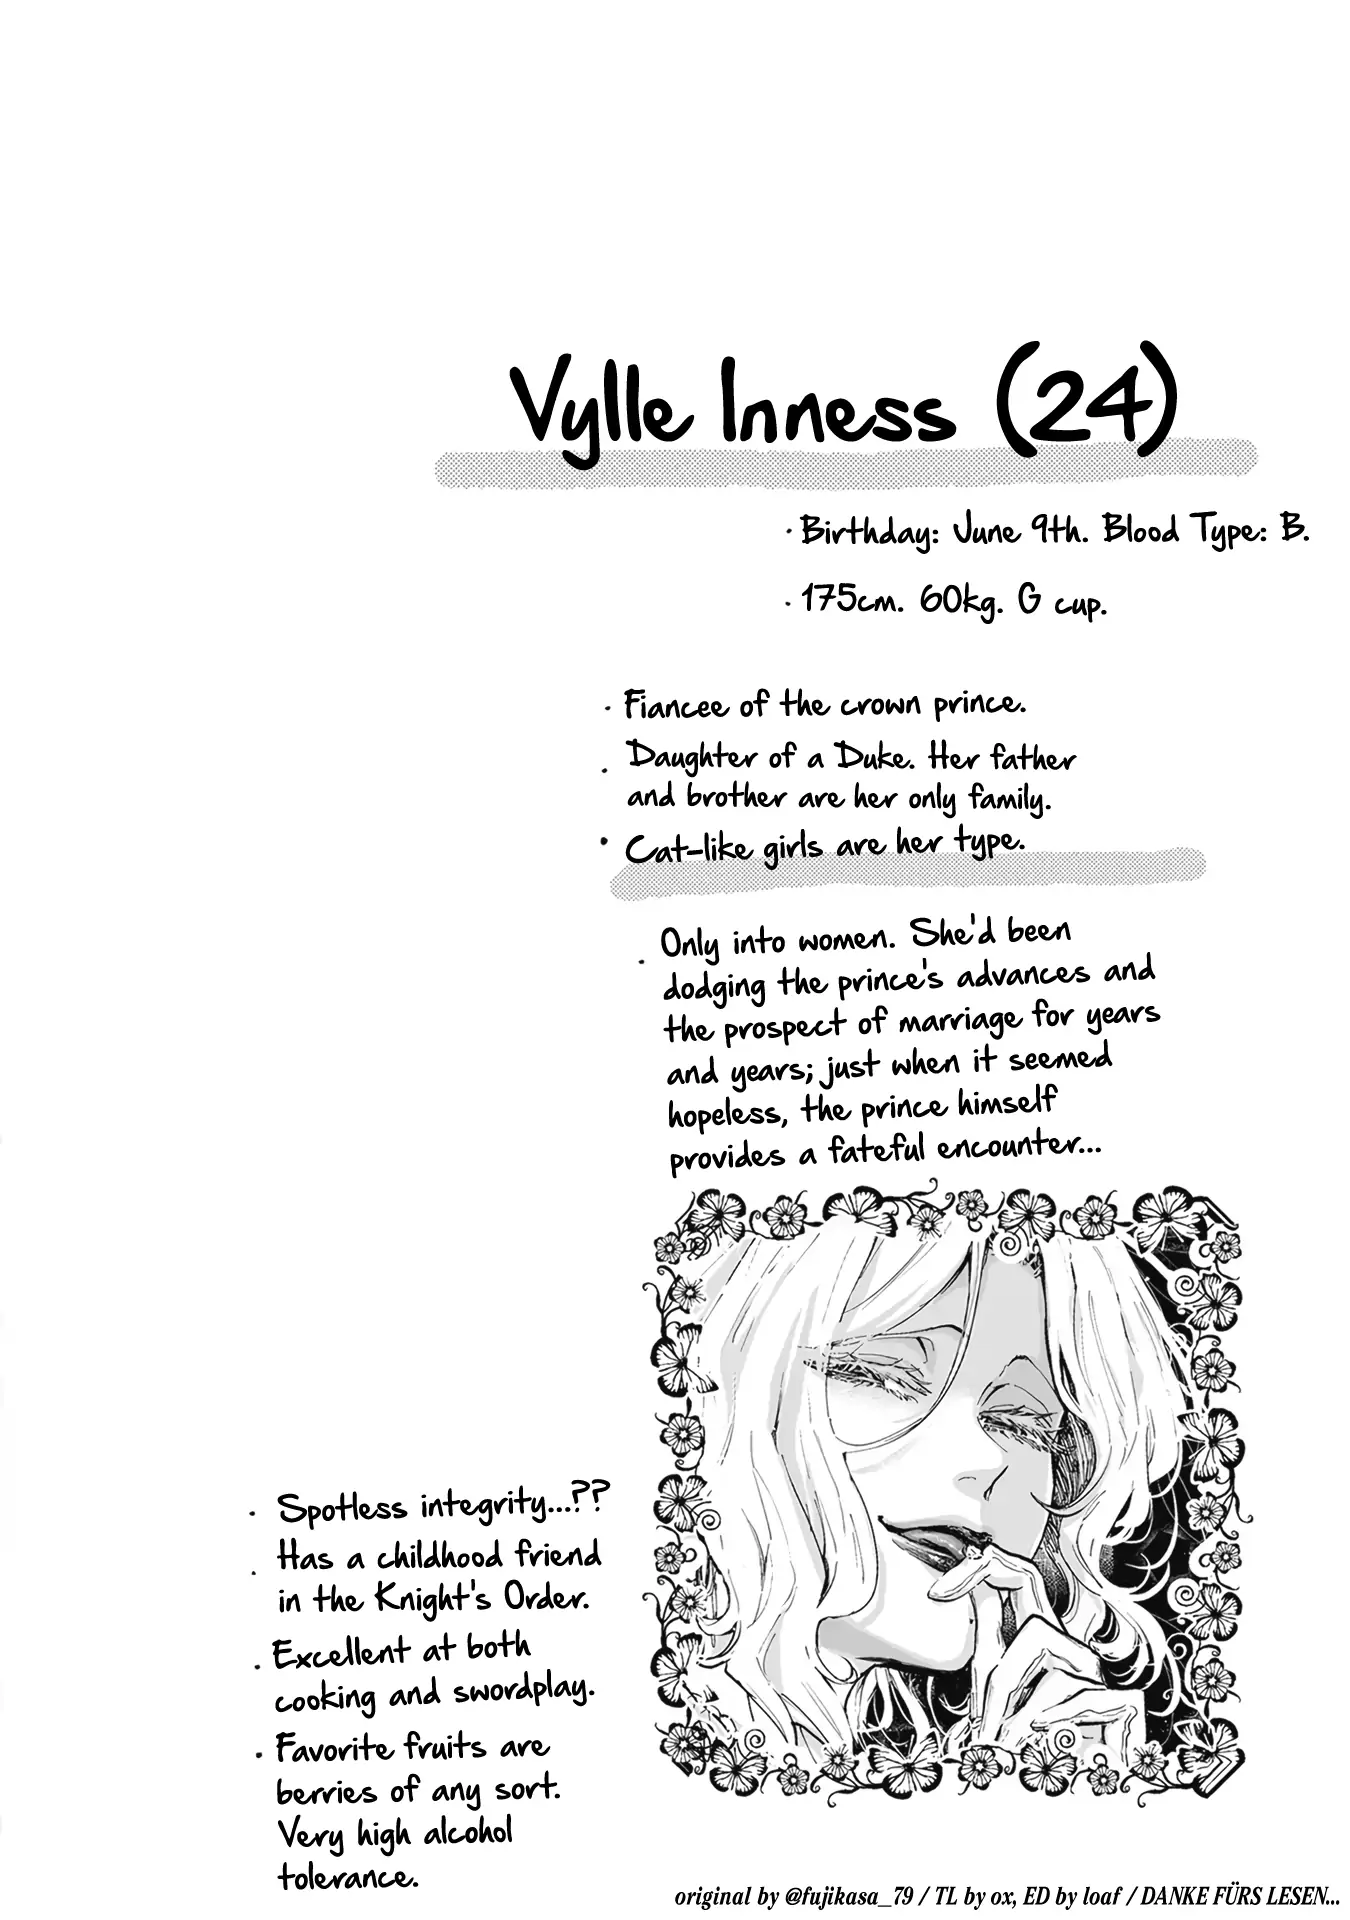 Vylle Inness (24)
· Birthday: June 9th. Blood Type: B.
· 175cm. 60kg. G cup.
· Fiancee of the crown prince.
· Daughter of a Duke. Her father
and brother are her only family.
· Cat-like girls are her type.
· Only into women. She'd been
dodging the prince's advances and
the prospect of marriage for years
and years; just when it seemed
hopeless, the prince himself
provides a fateful encounter...
· Spotless integrity...??
· Has a childhood friend
in the Knight's Order.
· Excellent at both
cooking and swordplay.
· Favorite fruits are
berries of any sort.
Very high alcohol
tolerance.
original by @fujikasa_79 / TL by ox, ED by loaf / DANKE FÜRS LESEN...